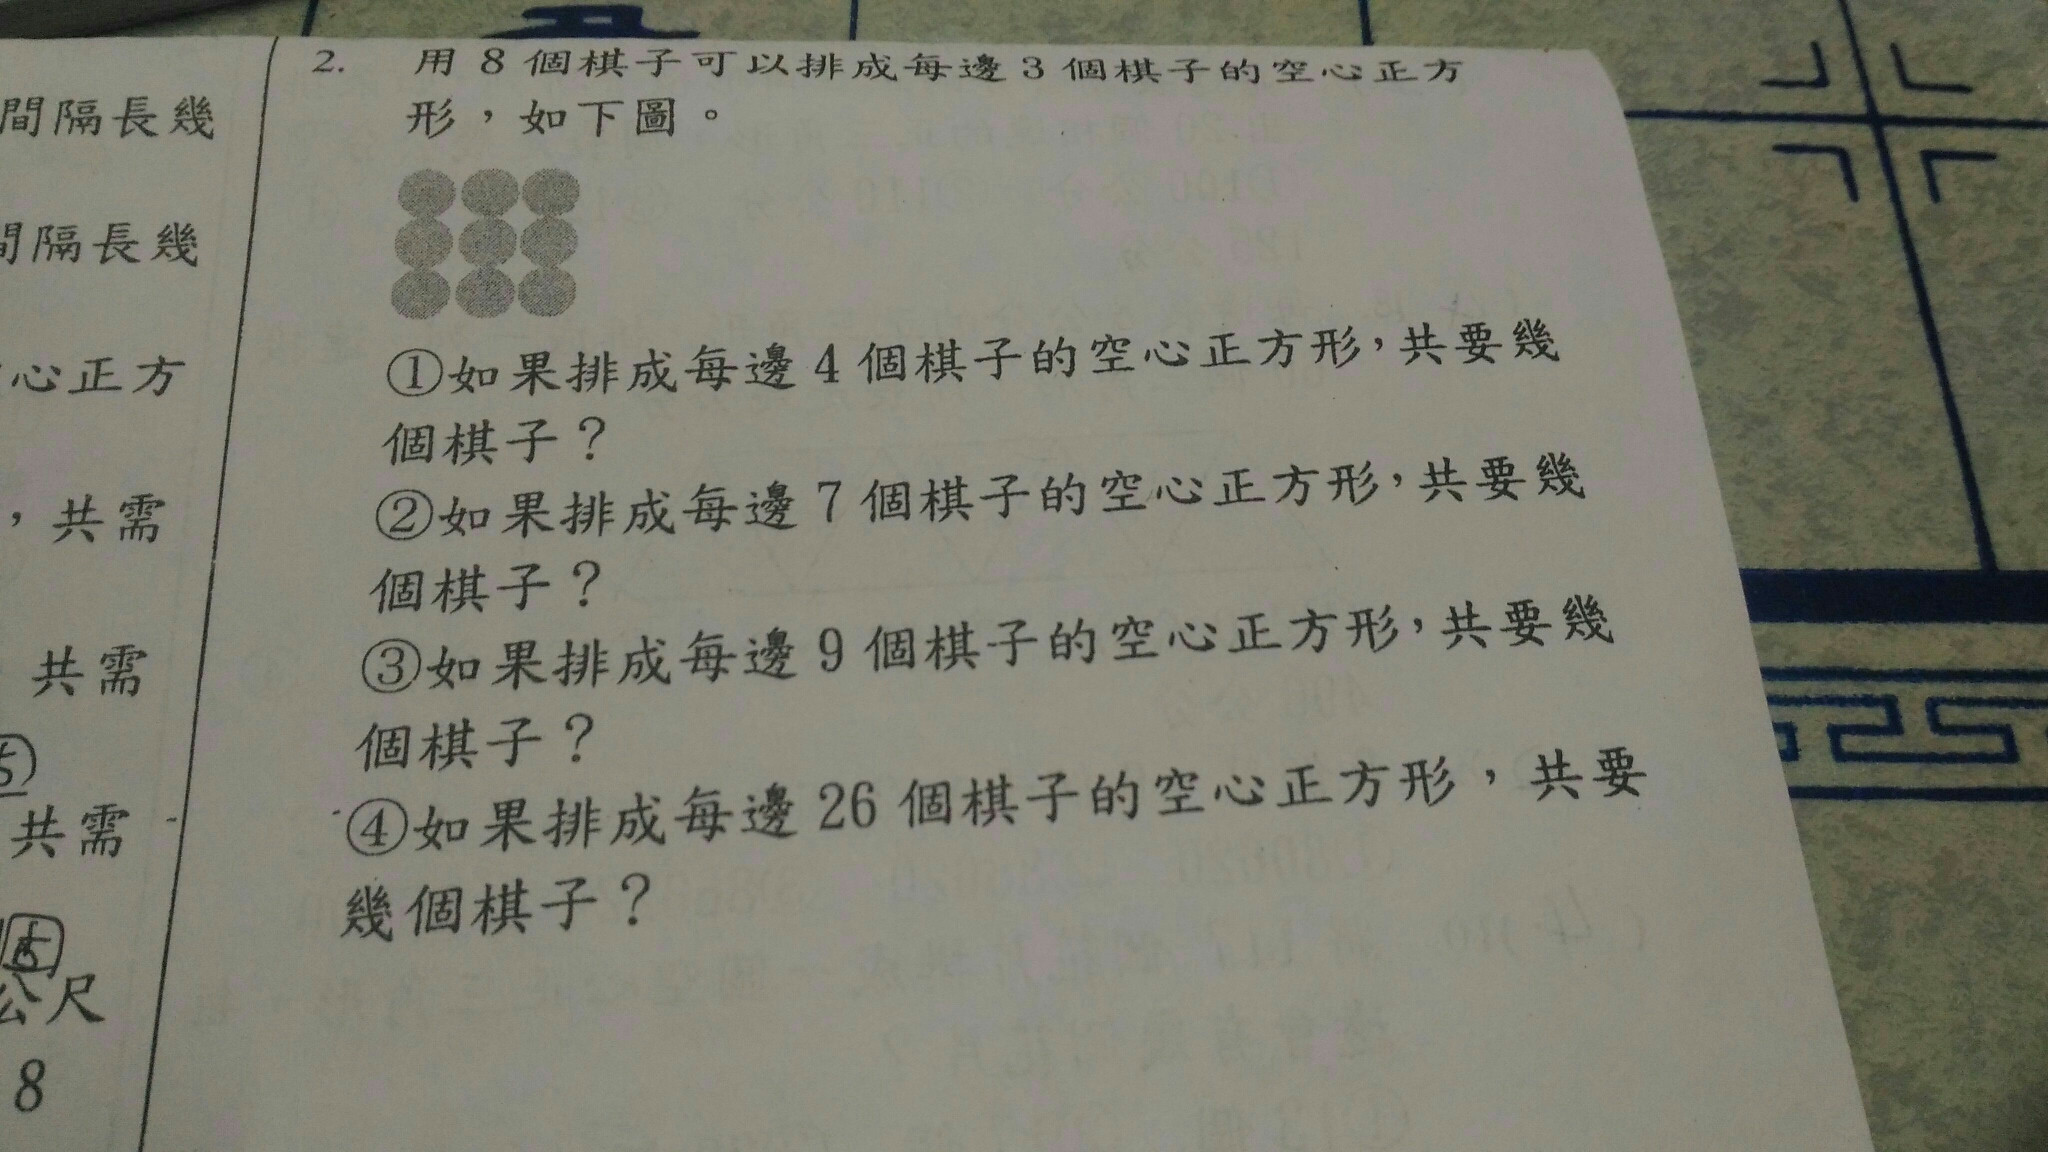 間隔長幾
間隔長幾
心正方
，共需
共需
共需
公尺
8
2. 用 8 個棋子可以排成每邊 3 個棋子的空心正方
形，如下圖。
①如果排成每邊 4 個棋子的空心正方形，共要幾
個棋子？
②如果排成每邊 7 個棋子的空心正方形，共要幾
個棋子？
③如果排成每邊 9 個棋子的空心正方形，共要幾
個棋子？
④如果排成每邊 26 個棋子的空心正方形，共要
幾個棋子？